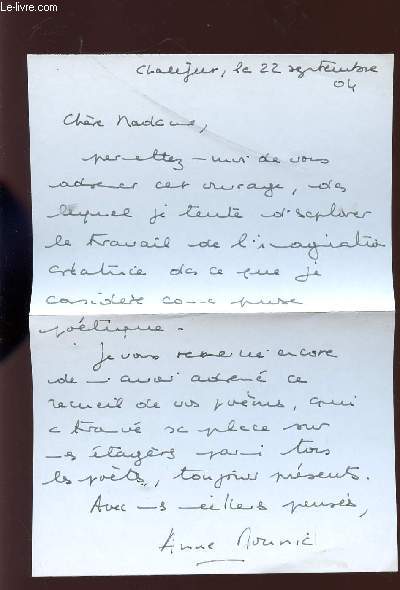 Le-livre.com
le 22 septembre
04
Chère Madame,
permettez-moi de vous
adresser cet ouvrage, dans
lequel je tente d'explorer
le travail de l'imagination
créatrice dans ce que je
considère comme prose
poétique.
Je vous remercie encore
de m'avoir adressé ce
recueil de vos poèmes, qui
a trouvé sa place sur
mes étagères parmi tous
les poètes, toujours présents.
Avec mes meilleures pensées,
Anne Mounic